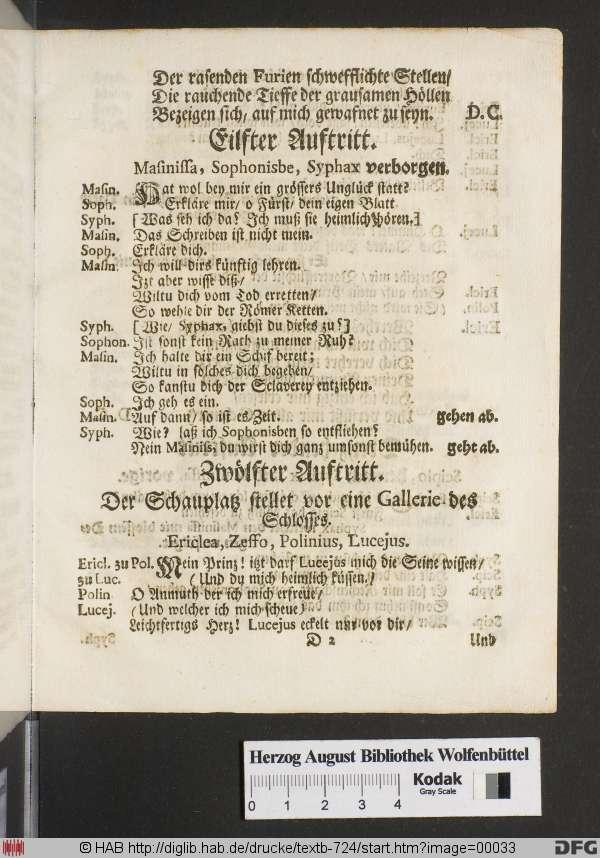 Der rasenden Furien schwefflichte Stellen/
Die rauchende Tieffe der grausamen Höllen
Bezeigen sich/ auf mich gewafnet zu seyn. D.C.
Eilfter Auftritt.
Masinissa, Sophonisbe, Syphax verborgen.
Masin. Hat wol bey mir ein grössers Unglück statt?
Soph. Erkläre mir/ o Fürst/ dein eigen Blatt
Syph. [Was seh ich da? Ich muß sie heimlich hören.]
Masin. Das Schreiben ist nicht mein.
Soph. Erkläre dich.
Masin. Ich will dirs künftig lehren.
Izt aber wisse diß/
Wiltu dich vom Tod erretten/
So wehle dir der Römer Ketten.
Syph. [Wie/ Syphax, giebst du dieses zu?]
Sophon. Ist sonst kein Rath zu meiner Ruh?
Masin. Ich halte dir ein Schif bereit;
Wiltu in solches dich begeben/
So kanstu dich der Sclaverey entziehen.
Soph. Ich geh es ein.
Masin. Auf dann/ so ist es Zeit. gehen ab.
Syph. Wie? laß ich Sophonisben so entfliehen?
Nein Masiniss; du wirst dich ganz umsonst bemühen. geht ab.
Zwölfter Auftritt.
Der Schauplatz stellet vor eine Gallerie des
Schlosses.
Ericlea, Zeffo, Polinius, Lucejus.
Ericl. zu Pol. Mein Prinz! itzt darf Lucejus mich die Seine wissen/
zu Luc. (Und du mich heimlich küssen/)
Polin O Anmuth der ich mich erfreue/
Lucej. (Und welcher ich mich scheue)
Leichtfertigs Herz! Lucejus eckelt nur vor dir/
D 2 Und
Herzog August Bibliothek Wolfenbüttel
Kodak
Gray Scale
0 1 2 3 4
© HAB http://diglib.hab.de/drucke/textb-724/start.htm?image=00033
DFG